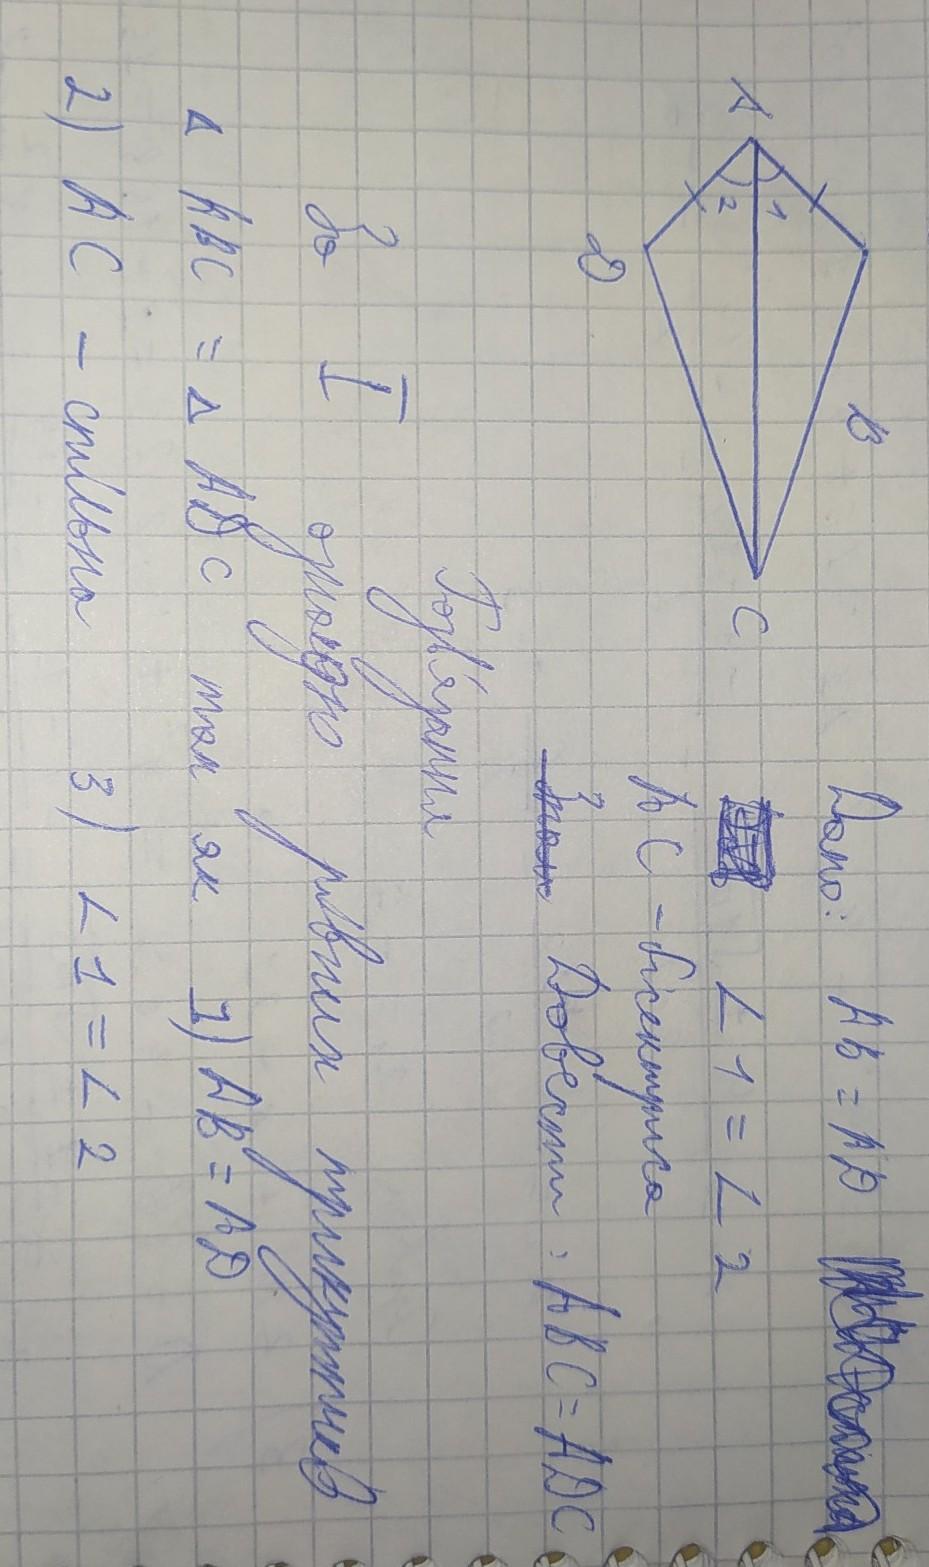 A
B
C
D
1
2
Дано: AB = AD
∠1 = ∠2
AC - бісектриса
Довести: ABC = ADC
Розв'язання
За I ознакою рівних трикутників
Δ ABC = Δ ADC так як 1) AB = AD
2) AC - спільна 3) ∠1 = ∠2